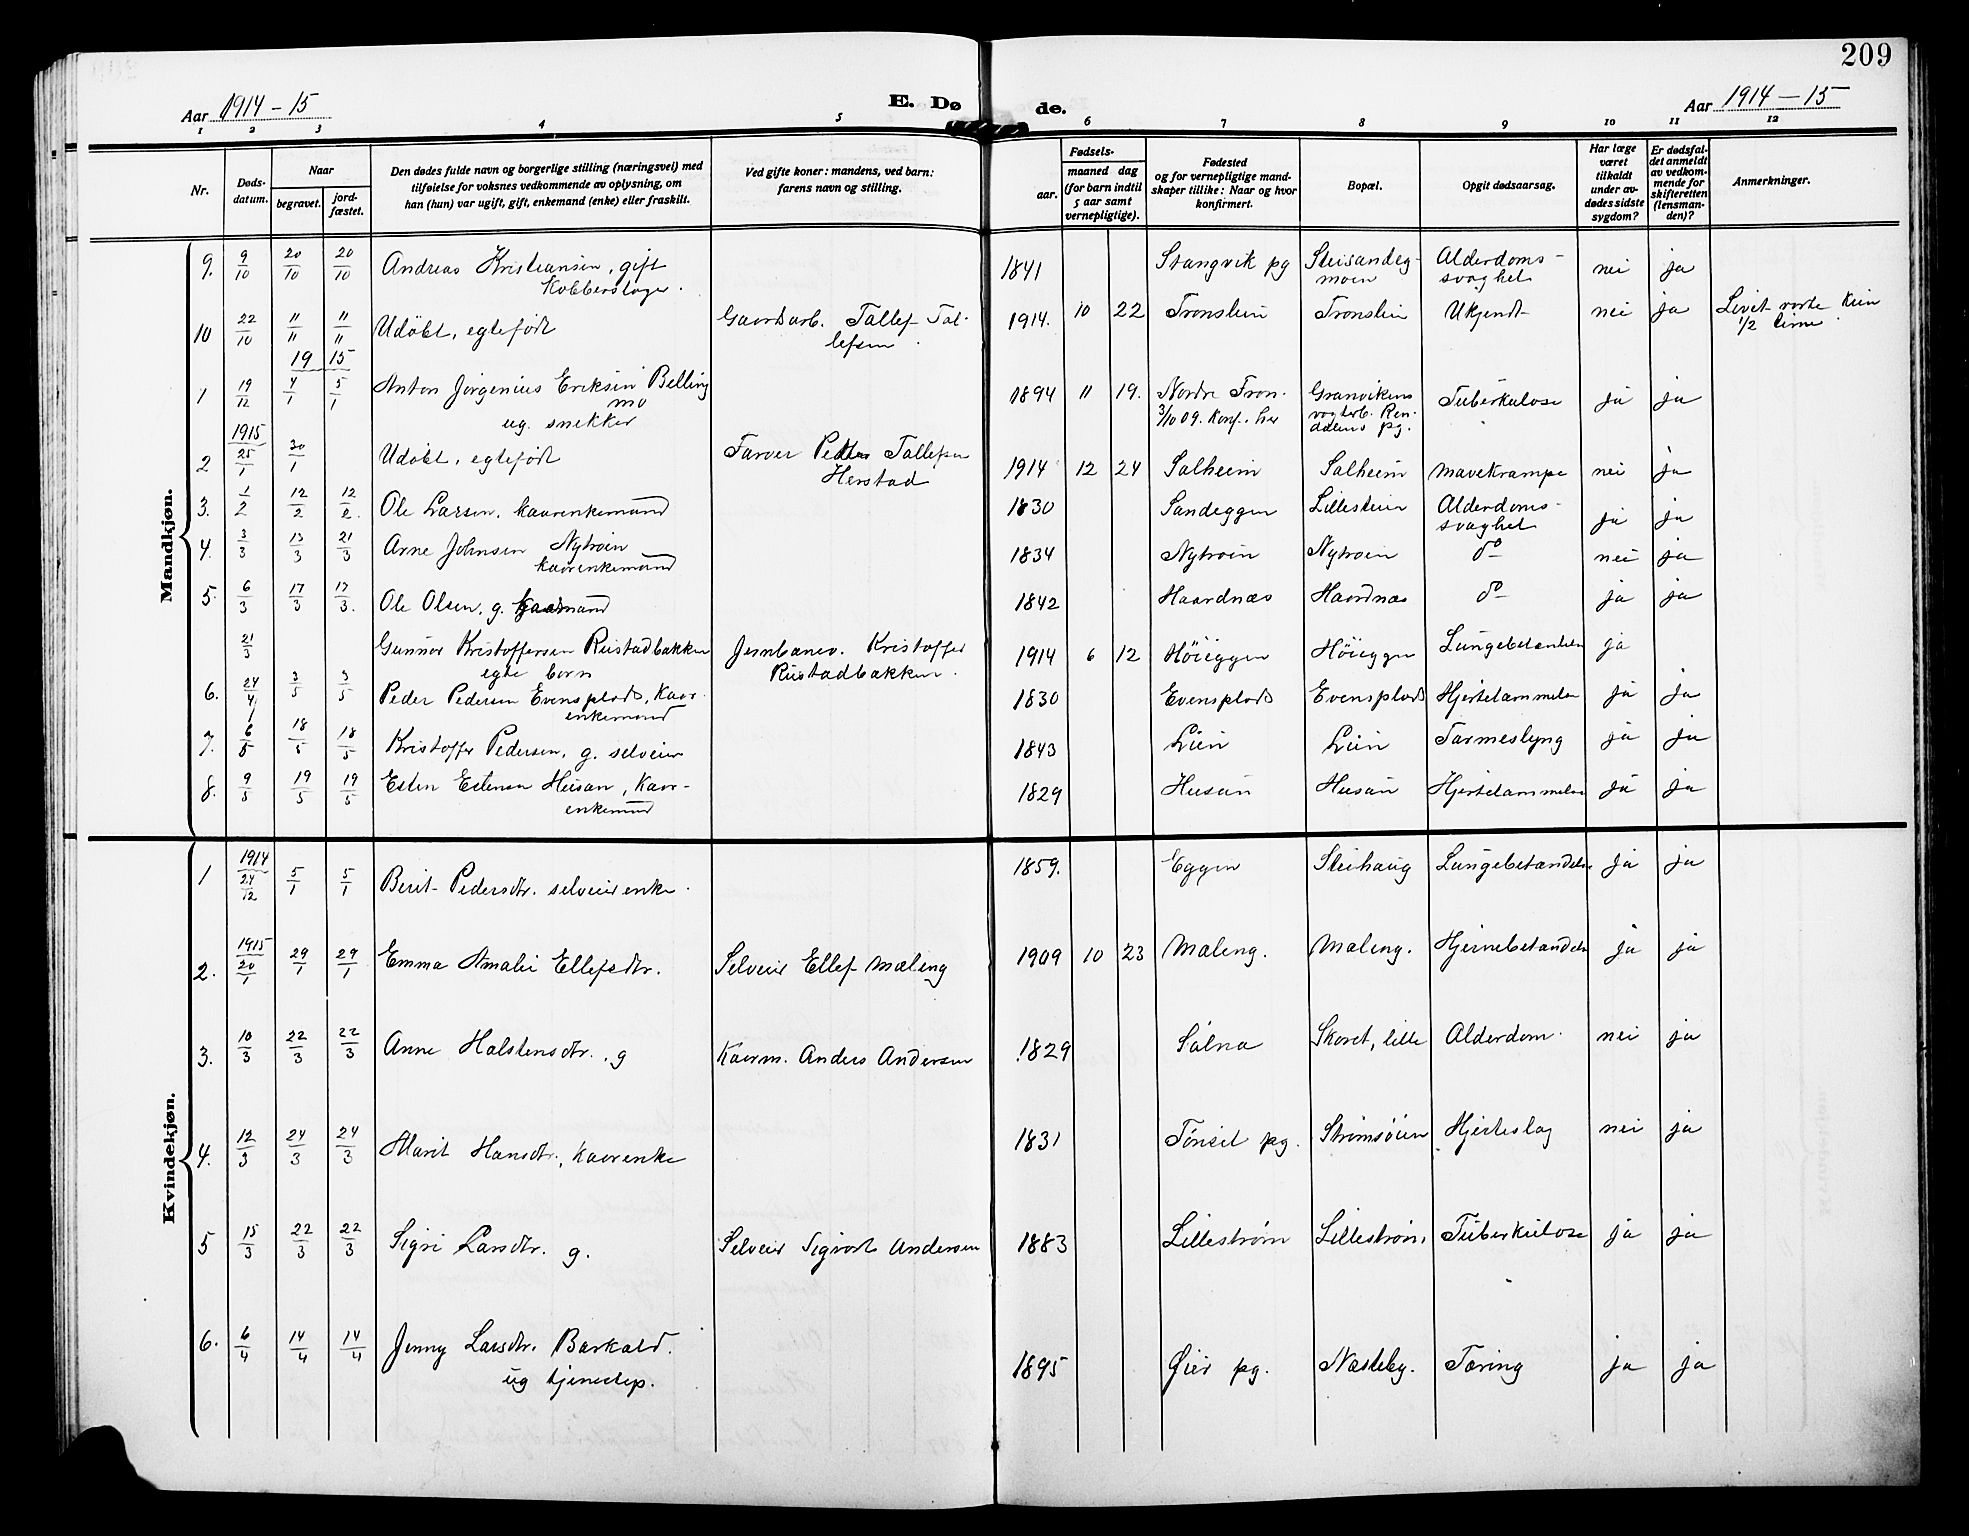 209
Aar 1914 - 15
E. Dø
de.
Aar 1914 - 15
1 2 3 4 5 6 7 8 9 10 11 12
Nr.
Døds-
datum.
Naar
begravet.
jord-
fæstet.
Den dødes fulde navn og borgerlige stilling (næringsvei) med
tilføielse for voksnes vedkommende av oplysning, om
han (hun) var ugift, gift, enkemand (enke) eller fraskilt.
Ved gifte koner: mandens, ved barn:
farens navn og stilling.
Fødsels-
aar.
maaned dag
(for barn indtil
5 aar samt
vernepligtige).
Fødested
og for vernepligtige mand-
skaper tillike: Naar og hvor
konfirmert.
Bopæl.
Opgit dødsaarsag.
Har læge
været
tilkaldt
under av-
dødes sidste
sygdom?
Er dødsfal-
det anmeldt
av vedkom-
mende for
skifteretten
(lensman-
den)?
Anmerkninger.
Mandkjøn.
9. 9/10 20/10 20/10 Andreas Kristiansen, gift 1841 Stangvik pg Alderdoms- nei ja
svaghet
10 22/10 11/11 11/11 Udøbt, egtefødt Gaardarb. Tollef Tol- 1914. 10 22 Tronslien Tronslien Ukjendt nei ja
lefsen 1/2
19 15
1 19/12 4/1 5/1 Anton Jørgenius Eriksen Belling 1894 11 19. Nordre Tron. Tuberkulose ja ja
mo 3/10 09. Konf. her
ug. snekker
1915
2 25/1 30/1 Udøbt, egtefødt Farver Tollefsen 1914 12 24 Solheim Solheim Mavekrampe nei ja
Herstad
3. 1/2 12/2 12/2. Ole Larsen, kaarenkemand 1830 Sandeggen Lillesteien Alderdoms- ja ja
svaghet
4. 3/3 13/3 21/3 Arne Johnsen Nytrøien 1834 Nytrøien Nytrøien do nei ja
kaarenkemand
5. 6/3 17/3 17/3. Ole Olsen, g. 1842 Haardnæs Haardnæs do ja ja
21/3 Gunnor Kristoffersen Rustadbakken Jernbanev. Kristoffer 1914 6 12 Høieggen Høieggen Lungebetændelse ja
egte barn Rustadbakken.
6. 24/4 3/5 3/5 Peder Pedersen Evensplads, kaar- 1830 Evensplads Evensplads Hjertelammelse ja ja
enkemand
7. 6/5 18/5 18/5 Kristoffer Pedersen, g. selveier 1843 Lien Lien Tarmeslyng ja ja
8. 9/5 19/5 19/5 Esten Estensen Husan, kaar- 1829 Husan Husan Hjertelammelse ja ja
enkemand
Kvindekjøn.
1914
1 24/12 5/1 5/1 Berit Pedersdtr. selveierenke. 1859. Eggen Steihaug Lungebetændelse ja ja
1915
2. 20/1 29/1 29/1 Emma Amalie Ellefsdtr. Selveier Ellef Mæleng 1909 10 23 Mæleng. Mæleng. Hjernebetændelse ja ja
3. 10/3 22/3 22/3 Anne Halstensdtr., g Kaarm. Anders Andersen 1829 Sølna Skoret, lille Alderdom. nei ja
4. 12/3 24/3 24/3 Marit Hansdtr., kaarenke 1831 Tønset pg. Strømsøien Hjerteslag nei ja
5 15/3 22/3 22/3 Sigri Larsdtr. g. Selveier Sigvart Andersen 1883 Lillestrøm Lillestrøm Tuberkulose ja ja
6. 6/4 14/4 14/4 Jenny Larsdtr. Barkald. 1895 Øier pg. Næsteby. Tæring ja ja
ug tjenestep.